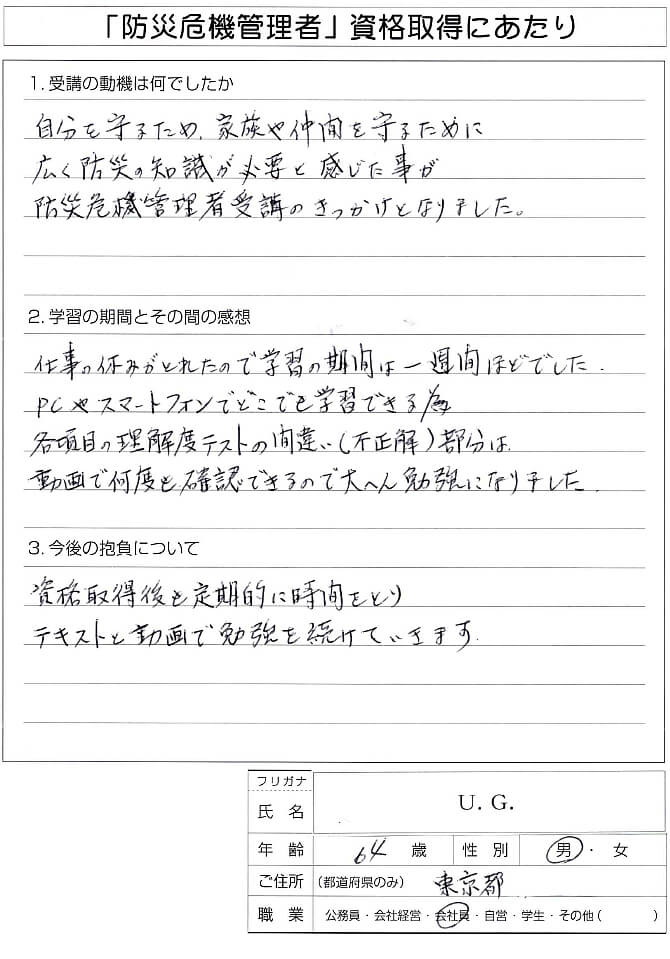 「防災危機管理者」資格取得にあたり
1. 受講の動機は何でしたか
自分を守るため、家族や仲間を守るために
広く防災の知識が必要と感じた事が
防災危機管理者受講のきっかけとなりました。
2. 学習の期間とその間の感想
仕事の休みがとれたので学習の期間は一週間ほどでした.
PCやスマートフォンでどこでも学習できる為
各項目の理解度テストの間違い(不正解)部分は
動画で何度も確認できるので大へん勉強になりました.
3. 今後の抱負について
資格取得後も定期的に時間をとり
テキストと動画で勉強を続けていきます.
フリガナ
氏 名 U. G.
年 齢 64 歳 性 別 男 ・ 女
ご住所 (都道府県のみ) 東京都
職 業 公務員・会社経営・会社員・自営・学生・その他( )